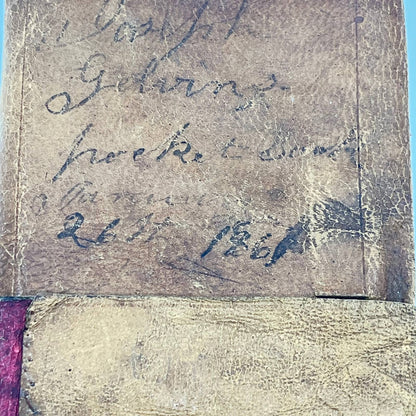 Joseph
Gelving
pocket Book
26th 1861